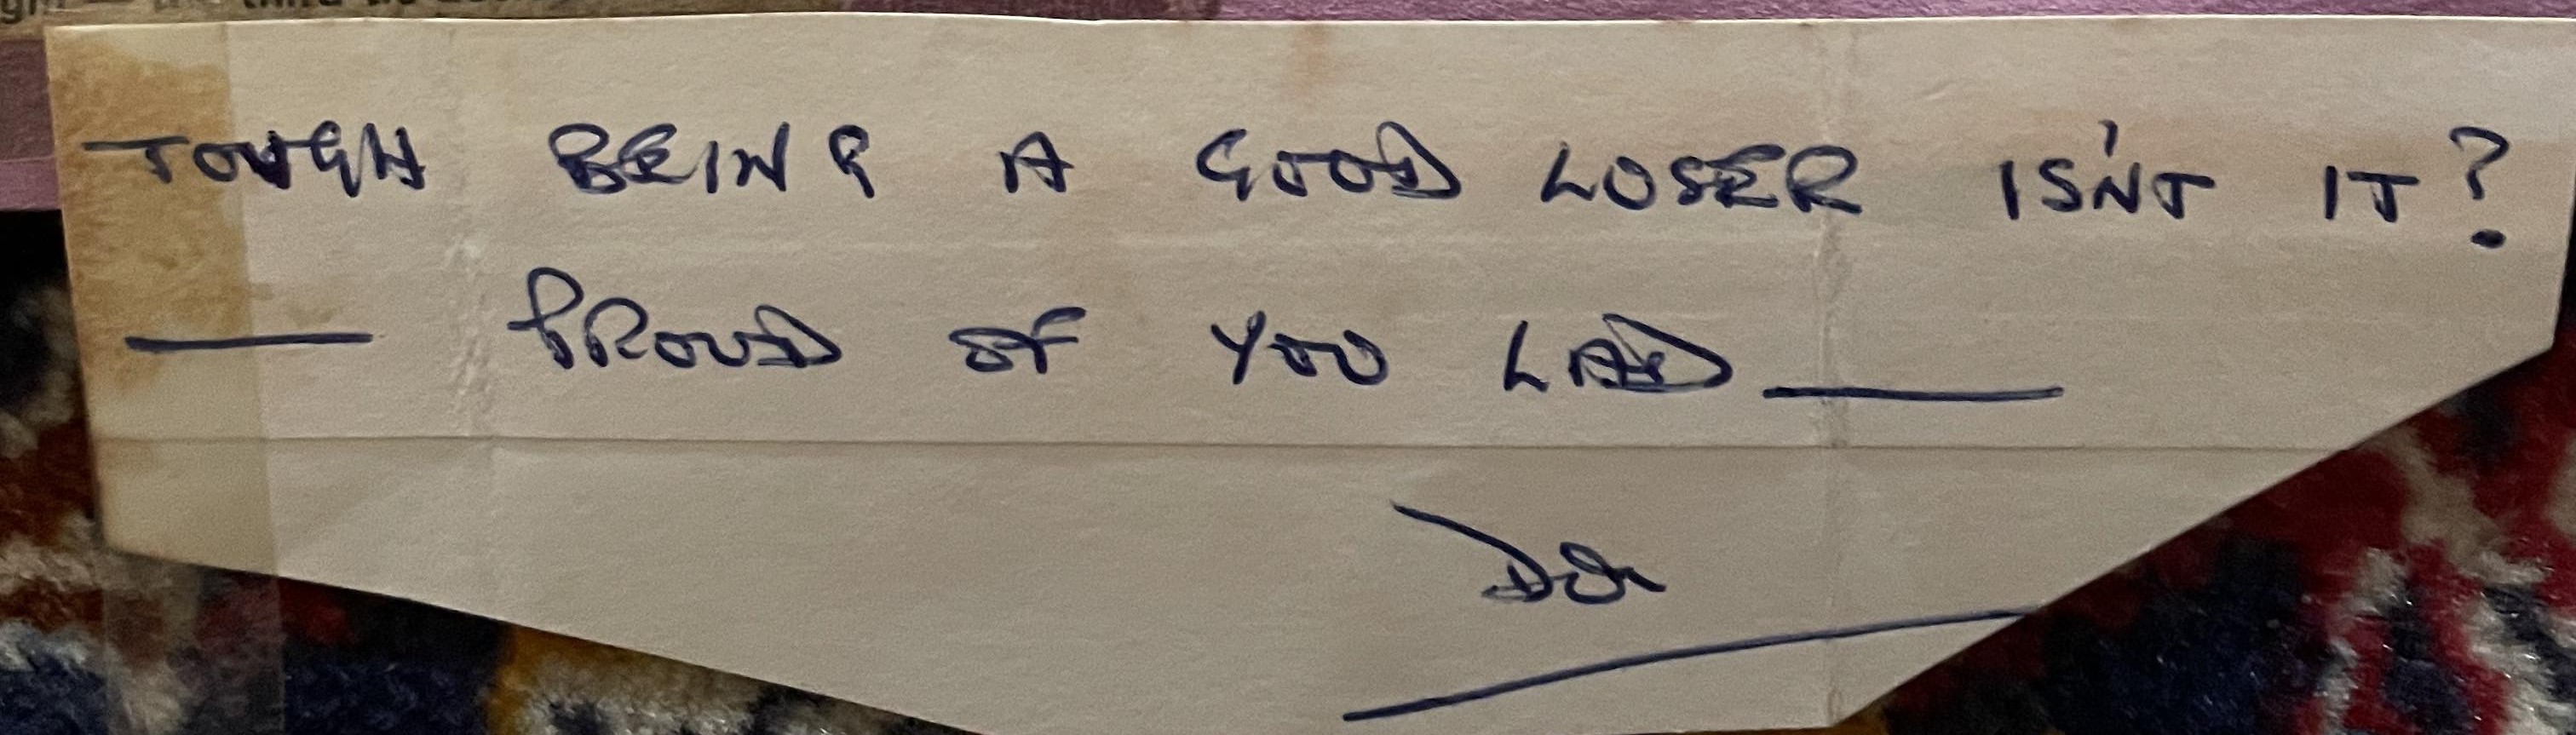 TOUGH BEING A GOOD LOSER ISN'T IT?
— PROUD OF YOU LAD —